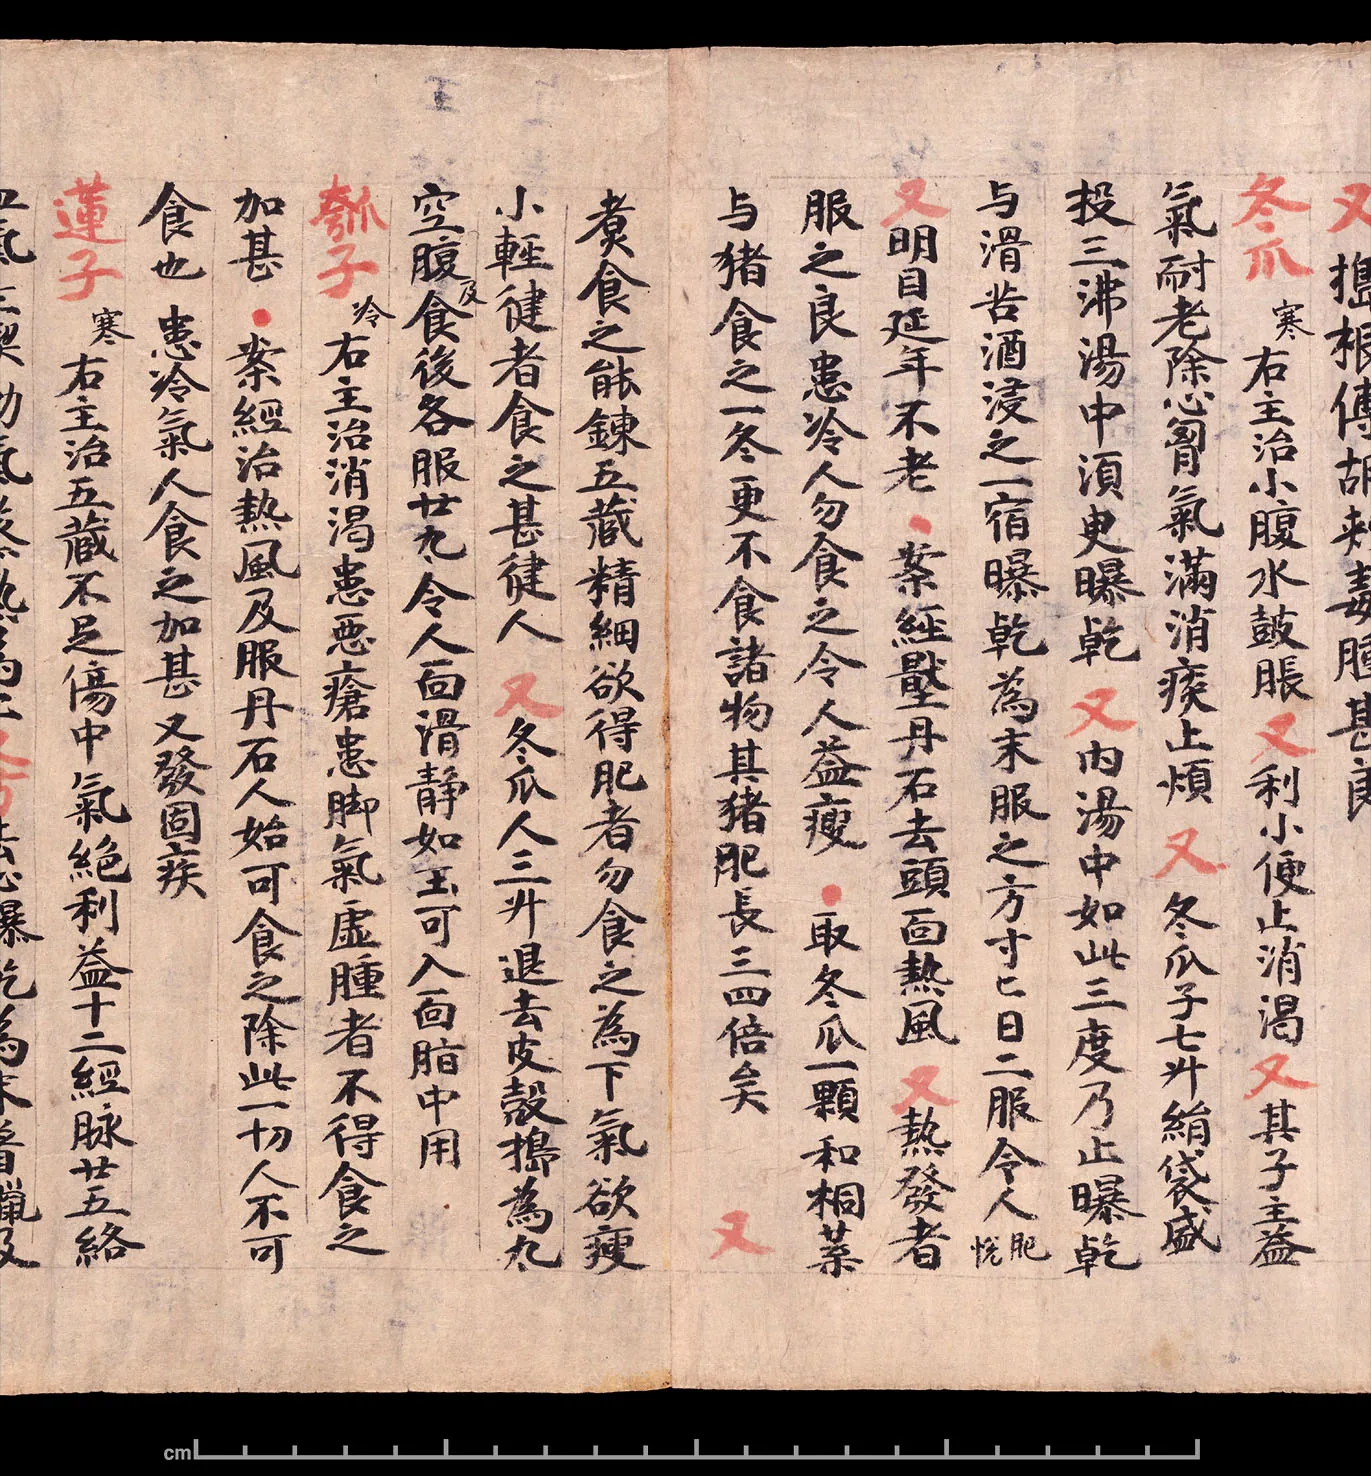 又 搗根傅胡刺毒腫甚良
冬瓜 寒 右主治小腹水鼓脹 又 利小便止消渴 又 其子主益
氣耐老除心胷氣滿消痰止煩 又 冬瓜子七升絹袋盛
投三沸湯中須臾曝乾 又 內湯中如此三度乃止曝乾
与滑苦酒浸之一宿曝乾為末服之方寸匕日二服令人肥悅
又 明目延年不老 案經壓丹石去頭面熱風 又 熱發者
服之良患冷人勿食之令人益瘦 取冬瓜一顆和桐葉
与猪食之一冬更不食諸物其猪肥長三四倍矣 又
煑食之能鍊五蔵精細欲得肥者勿食之為下氣欲瘦
小輕健者食之甚健人 又 冬瓜人三升退去皮殼搗為丸
空腹及食後各服廿丸令人面滑静如玉可入面脂中用
瓠子 冷 右主治消渴患惡瘡患脚氣虛腫者不得食之
加甚 案經治熱風及服丹石人始可食之除此一切人不可
食也 患冷氣人食之加甚 又發固疾
蓮子 寒 右主治五蔵不足傷中氣絶利益十二經脉廿五絡